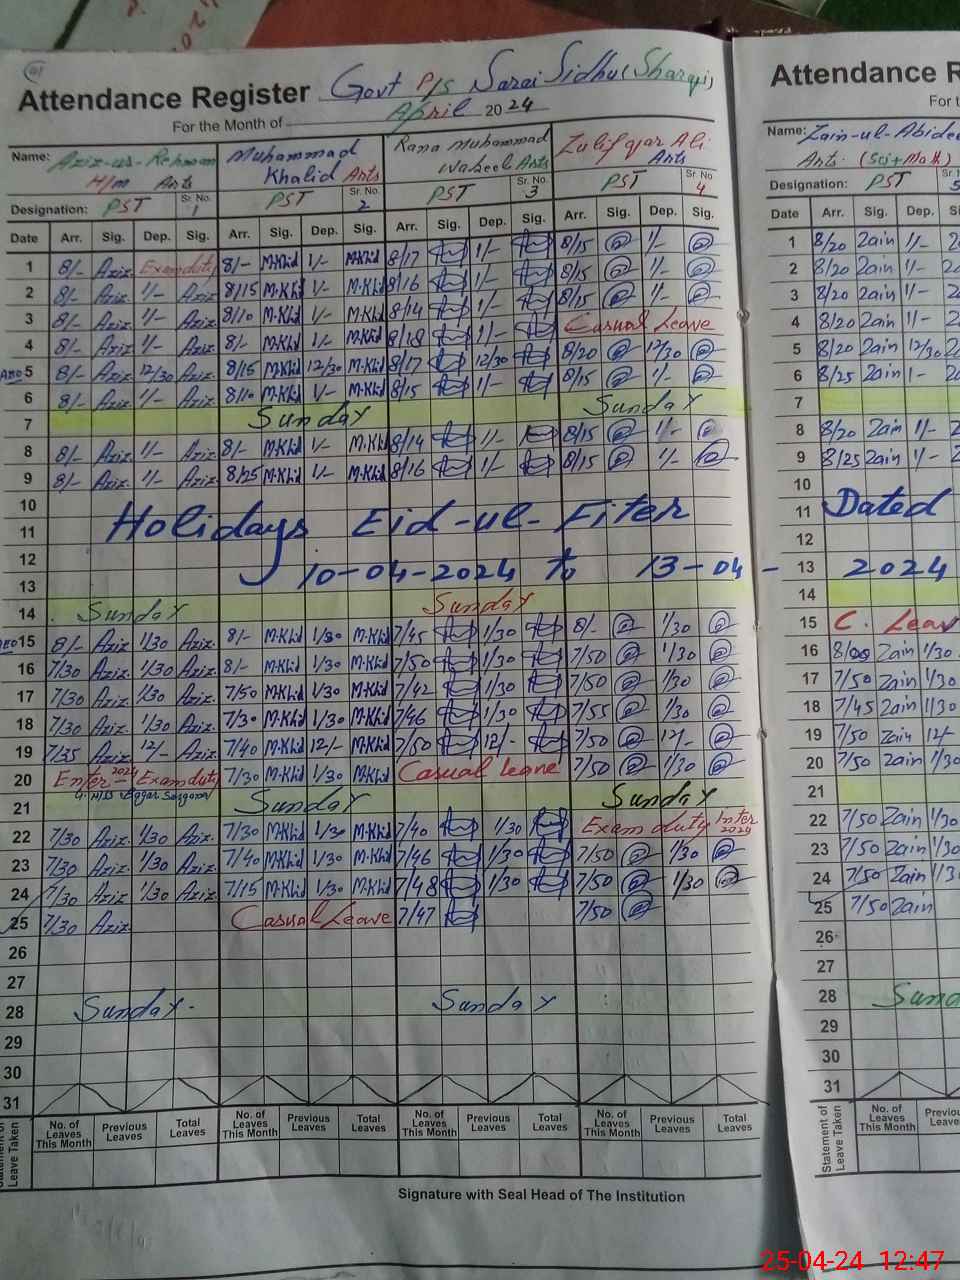 Attendance Register Govt P/S Sarai Sidhu (Sharqi)
For the Month of April 2024
Name: Aziz-ur-Rehman H/m Arts
Muhammad Khalid Arts
Rana Muhammad Waheel Arts
Zulifqar Ali Arts
Designation: PST Sr. No. 1 PST Sr. No. 2 PST Sr. No. 3 PST Sr. No. 4
Date Arr. Sig. Dep. Sig. Arr. Sig. Dep. Sig. Arr. Sig. Dep. Sig. Arr. Sig. Dep. Sig.
1 8/- Aziz Exam duty 8/- M.Klid 1/- M.Klid 8/17 1/- 8/15 1/-
2 8/- Aziz 1/- Aziz 8/15 M.Klid 1/- M.Klid 8/16 1/- 8/15 1/-
3 8/- Aziz 1/- Aziz. 8/10 M.Klid 1/- M.Klid 8/14 1/- 8/15 1/-
4 8/- Aziz 1/- Aziz. 8/- M.Klid 1/- M.Klid 8/18 1/- Casual Leave
5 8/- Aziz 12/30 Aziz. 8/15 M.Klid 12/30 M.Klid 8/17 12/30 8/20 12/30
6 8/- Aziz 1/- Aziz. 8/10 M.Klid 1/- M.Klid 8/15 1/- 8/15 1/-
7 Sunday Sunday
8 8/- Aziz 1/- Aziz. 8/- M.Klid 1/- M.Klid 8/14 1/- 8/15 1/-
9 8/- Aziz 1/- Aziz. 8/25 M.Klid 1/- M.Klid 8/16 1/- 8/15 1/-
10
11 Holidays Eid-ul-Fiter
12
13 10-04-2024 to 13-04-
14 Sunday Sunday
15 8/- Aziz 1/30 Aziz. 8/- M.Klid 1/30 M.Klid 7/45 1/30 8/- 1/30
16 7/30 Aziz 1/30 Aziz. 8/- M.Klid 1/30 M.Klid 7/50 1/30 7/50 1/30
17 7/30 Aziz 1/30 Aziz. 7/50 M.Klid 1/30 M.Klid 7/42 1/30 7/50 1/30
18 7/30 Aziz 1/30 Aziz. 7/30 M.Klid 1/30 M.Klid 7/46 1/30 7/55 1/30
19 7/35 Aziz 12/- Aziz. 7/40 M.Klid 12/- M.Klid 7/50 12/- 7/50 12/-
20 Enter-2024 Exam duty 7/30 M.Klid 1/30 M.Klid Casual leave 7/50 1/30
21 Sunday Sunday
22 7/30 Aziz 1/30 Aziz. 7/30 M.Klid 1/30 M.Klid 7/40 1/30 Exam duty Inter 2024
23 7/30 Aziz 1/30 Aziz. 7/40 M.Klid 1/30 M.Klid 7/46 1/30 7/50 1/30
24 7/30 Aziz 1/30 Aziz. 7/15 M.Klid 1/30 M.Klid 7/48 1/30 7/50 1/30
25 7/30 Aziz Casual Leave 7/47 7/50
26
27
28 Sunday Sunday
29
30
31
Statement of Leave Taken
No. of Leaves This Month Previous Leaves Total Leaves No. of Leaves This Month Previous Leaves Total Leaves No. of Leaves This Month Previous Leaves Total Leaves No. of Leaves This Month Previous Leaves Total Leaves
Signature with Seal Head of The Institution
Attendance R
For t
Name: Zain-ul-Abidee
Arts. (Sci+Math)
Designation: PST 5
Date Arr. Sig. Dep.
1 8/20 Zain 1/-
2 8/20 Zain 1/-
3 8/20 Zain 1/-
4 8/20 Zain 1/-
5 8/20 Zain 12/30
6 8/25 Zain 1-
7
8 8/20 Zain 1/-
9 8/25 Zain 1/-
10
11 Dated
12
13 2024
14
15 C. Leav
16 Zain 1/30
17 7/50 Zain 1/30
18 7/45 Zain 1/30
19 7/50 Zain 12/-
20 7/50 Zain 1/30
21
22 7/50 Zain 1/30
23 7/50 Zain 1/30
24 7/50 Zain 1/3
25 7/50 Zain
26
27
28 Sund
29
30
31
Statement of Leave Taken
No. of Leaves This Month Previous Leaves
25-04-24 12:47